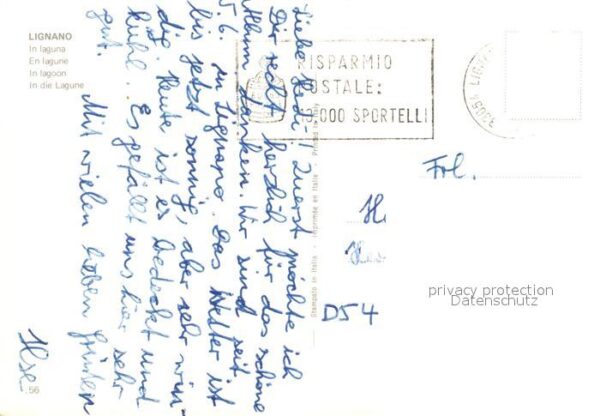 LIGNANO
In laguna
En lagune
In lagoon
In die Lagune
Liebe Heidi! Zuerst möchte ich
Dir recht herzlich für das schöne
Album danken. Wir sind seit
5.6. in Lignano. Das Wetter ist
bis jetzt sonnig, aber sehr win-
dig. Heute ist es bedeckt und
kühl. Es gefällt uns hier sehr
gut.
Mit vielen lieben Grüßen
Ilse
56
Stampato in Italia - Imprimée en Italie - Printed in Italy
RISPARMIO
POSTALE:
000 SPORTELLI
Frl.
H
D54
privacy protection
Datenschutz